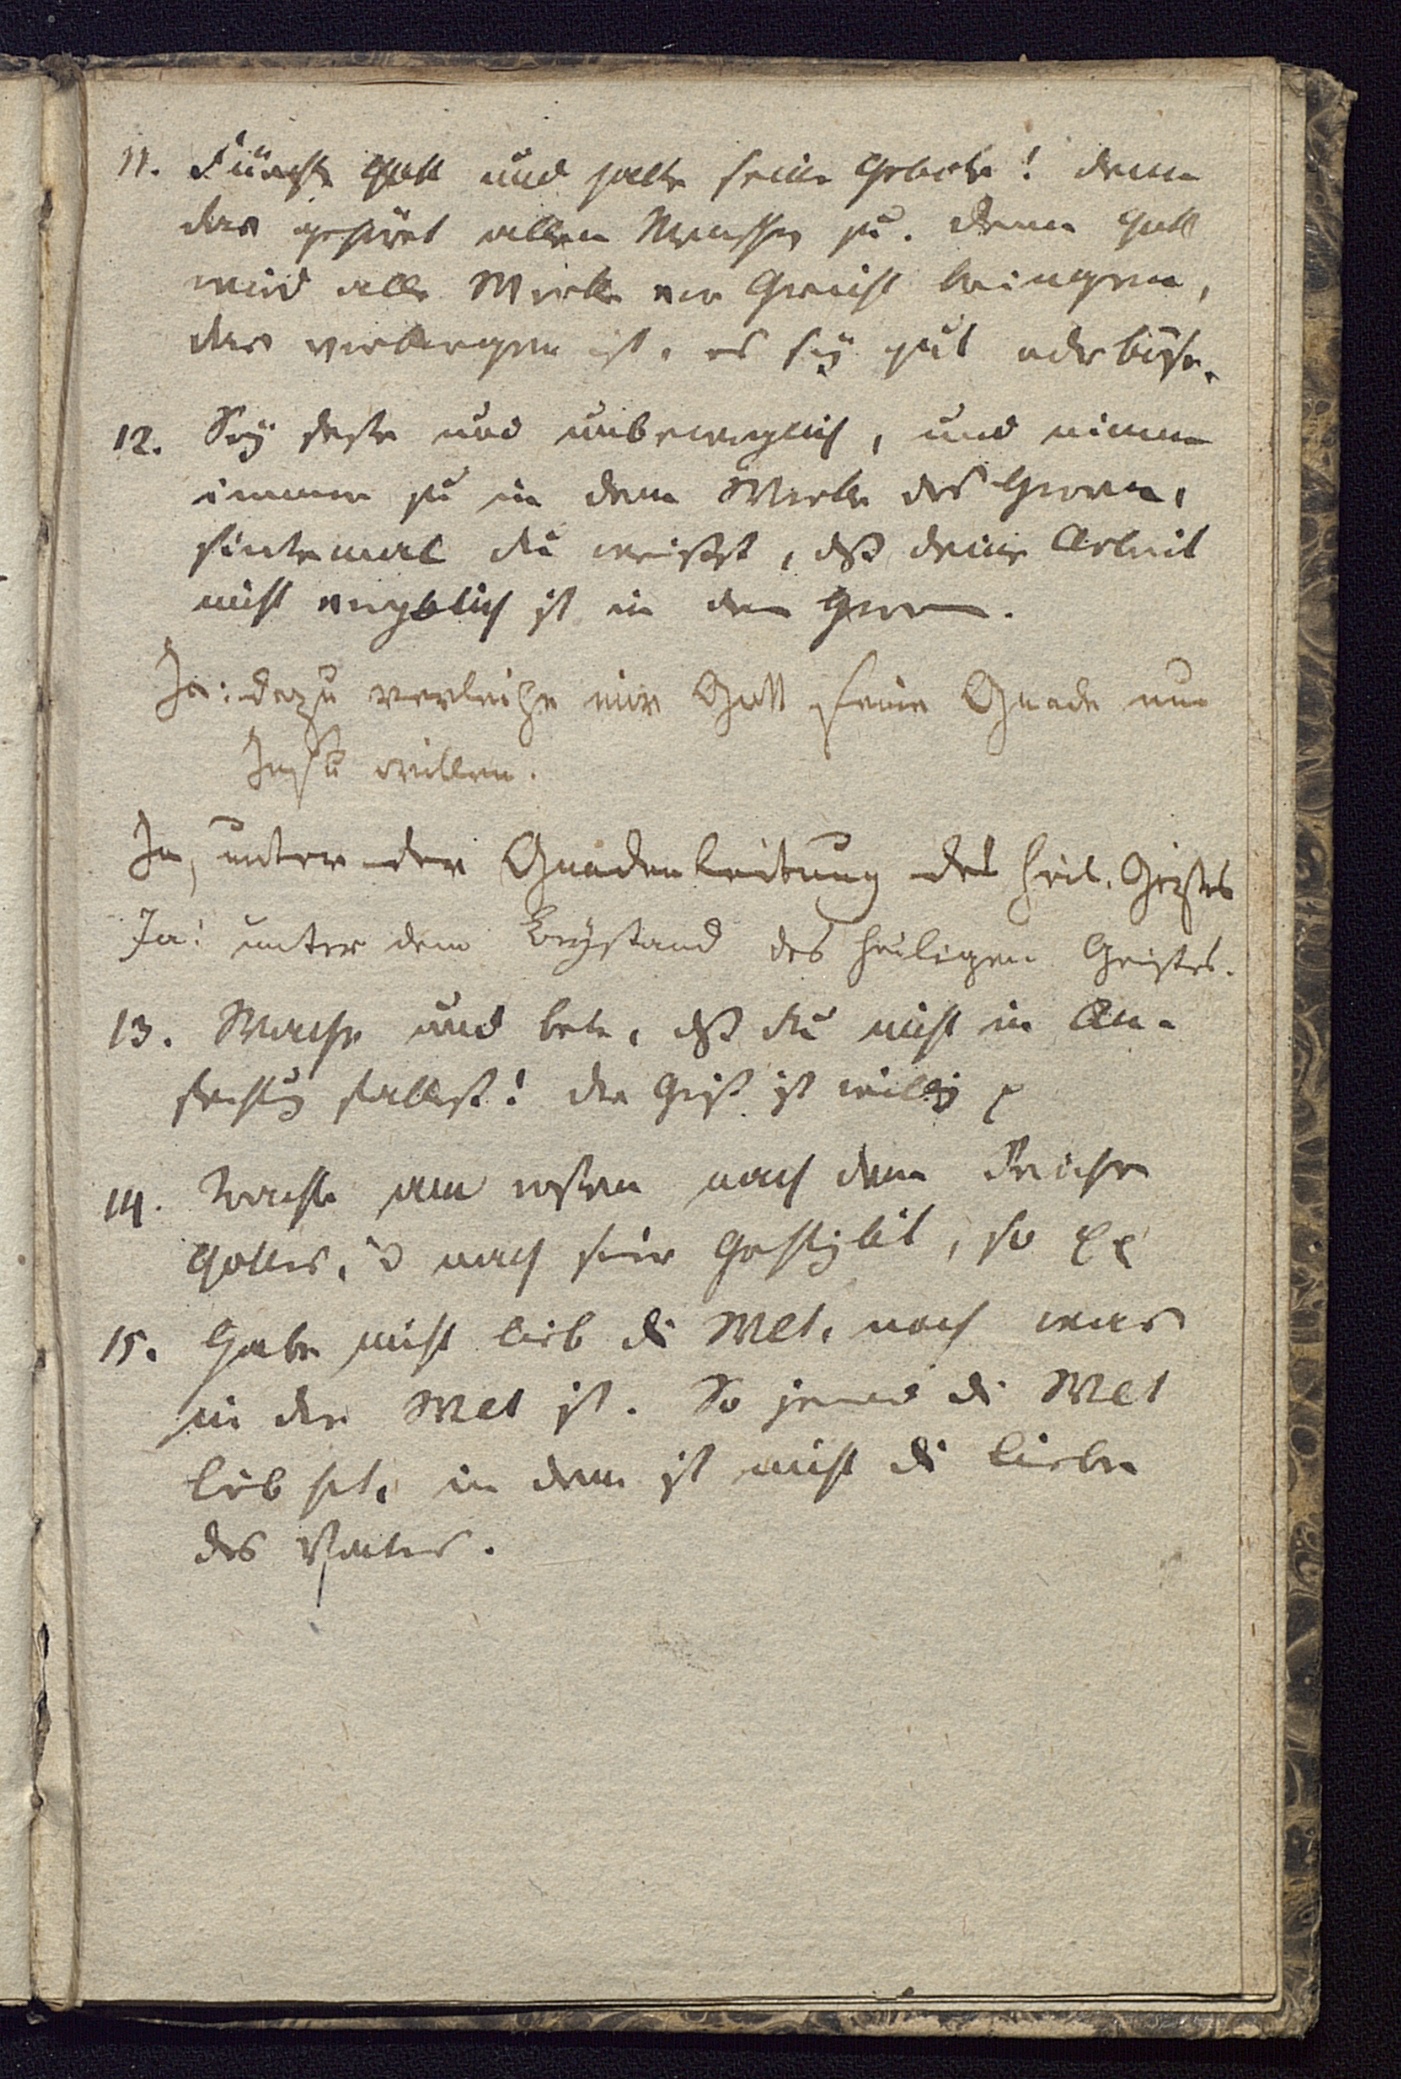 11. Fürchte Gott und halte seine Gebote! denn
das gehöret allen Menschen zu. denn Gott
wird alle Werke vor Gericht bringen,
das verborgen ist, es sey gut oder böse.
12. Sey feste und unbeweglich, und nimm
immer zu in dem Werke des Herrn,
sintemal du weißt, daß deine Arbeit
nicht vergeblich ist in dem Herrn.
Ja: dazu verleihe mir Gott seine Gnade um
Jesu willen.
Ja, unter der Gnadenleitung des heil. Geistes
Ja! unter dem Beystand des heiligen Geistes.
13. Wache und bete, daß du nicht in An-
fechtung fallest! der Geist ist willig p
14. Trachte am ersten nach dem Reiche
Gottes, u nach seiner Gerechtigkeit, so pp
15. Habe nicht lieb die Welt, noch was
in der Welt ist. So jemand die Welt
lieb hat, in dem ist nicht die Liebe
des Vaters.